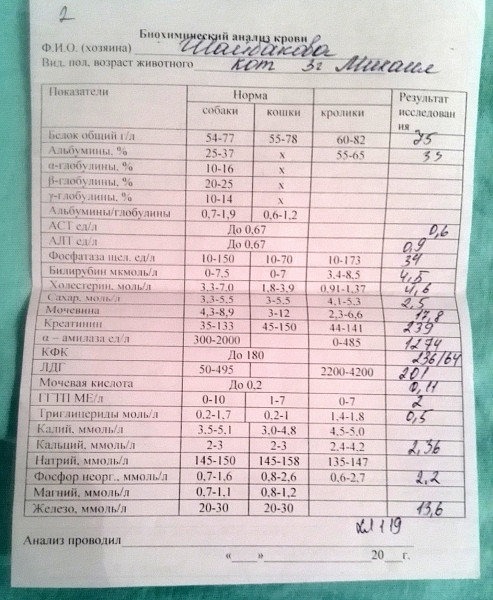 2
Биохимический анализ крови
Ф.И.О. (хозяина) Шайбакова
Вид, пол, возраст животного кот 3г Михаил
Показатели Норма Результат исследования
собаки кошки кролики
Белок общий г/л 54-77 55-78 60-82 75
Альбумины, % 25-37 x 55-65 33
α-глобулины, % 10-16 x
β-глобулины, % 20-25 x
γ-глобулины, % 10-14 x
Альбумины/глобулины 0,7-1,9 0,6-1,2
АСТ ед/л До 0,67 0,6
АЛТ ед/л До 0,67 0,9
Фосфатаза щел. ед/л 10-150 10-70 10-173 34
Билирубин мкмоль/л 0-7,5 0-7 3.4-8,5 4,5
Холестерин, моль/л 3,3-7,0 1,8-3,9 0,91-1,37 4,6
Сахар, моль/л 3,3-5,5 3-5,5 4,1-5,3 2,5
Мочевина 4,3-8,9 3-12 2,3-6,6 17,8
Креатинин 35-133 45-150 44-141 239
α – амилаза ед/л 300-2000 0-485 1274
КФК До 180 236/64
ЛДГ 50-495 2200-4200 201
Мочевая кислота До 0,2 0,11
ГГТП МЕ/л 0-10 1-7 0-7 2
Триглицериды моль/л 0,2-1,7 0,2-1 1,4-1,8 0,5
Калий, ммоль/л 3,5-5,1 3,0-4,8 4,5-5,0
Кальций, ммоль/л 2-3 2-3 2,4-4,2 2,36
Натрий, ммоль/л 145-150 145-158 135-147
Фосфор неорг., ммоль/л 0,7-1,6 0,8-2,6 0,6-2,7 2,2
Магний, ммоль/л 0,7-1,1 0,8-1,2
Железо, ммоль/л 20-30 20-30 13,6
119
Анализ проводил
«___»____________20___г.